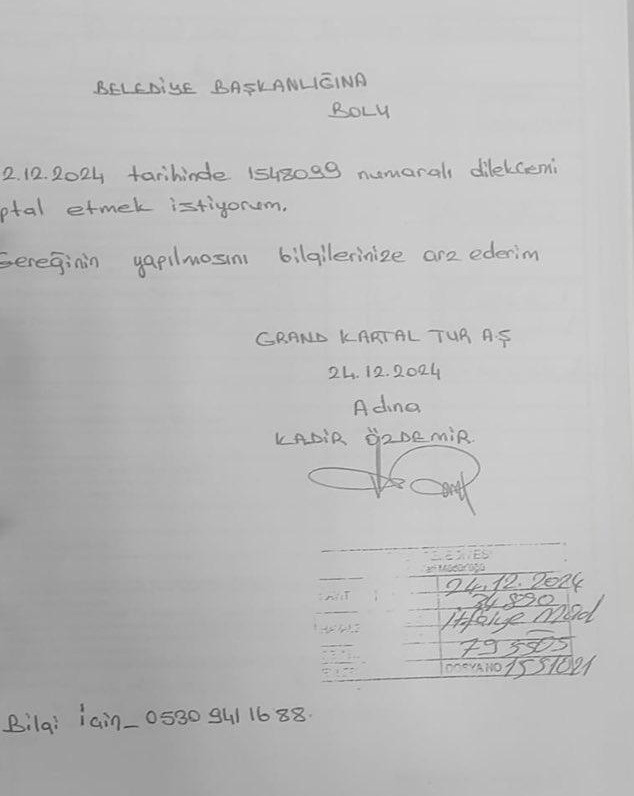 BELEDİYE BAŞKANLIĞINA
BOLU
2.12.2024 tarihinde 1548099 numaralı dilekcemi
ptal etmek istiyorum.
Gereğinin yapılmasını bilgilerinize arz ederim
GRAND KARTAL TUR A.Ş
24.12.2024
Adına
KADİR ÖZDEMİR.
ELEDİYESİ
Müdürlüğü
24.12.2024
34890
HAVALE İtfaiye Müd
795505
DOSYA NO 1551021
Bilgi için_ 0530 941 16 88.